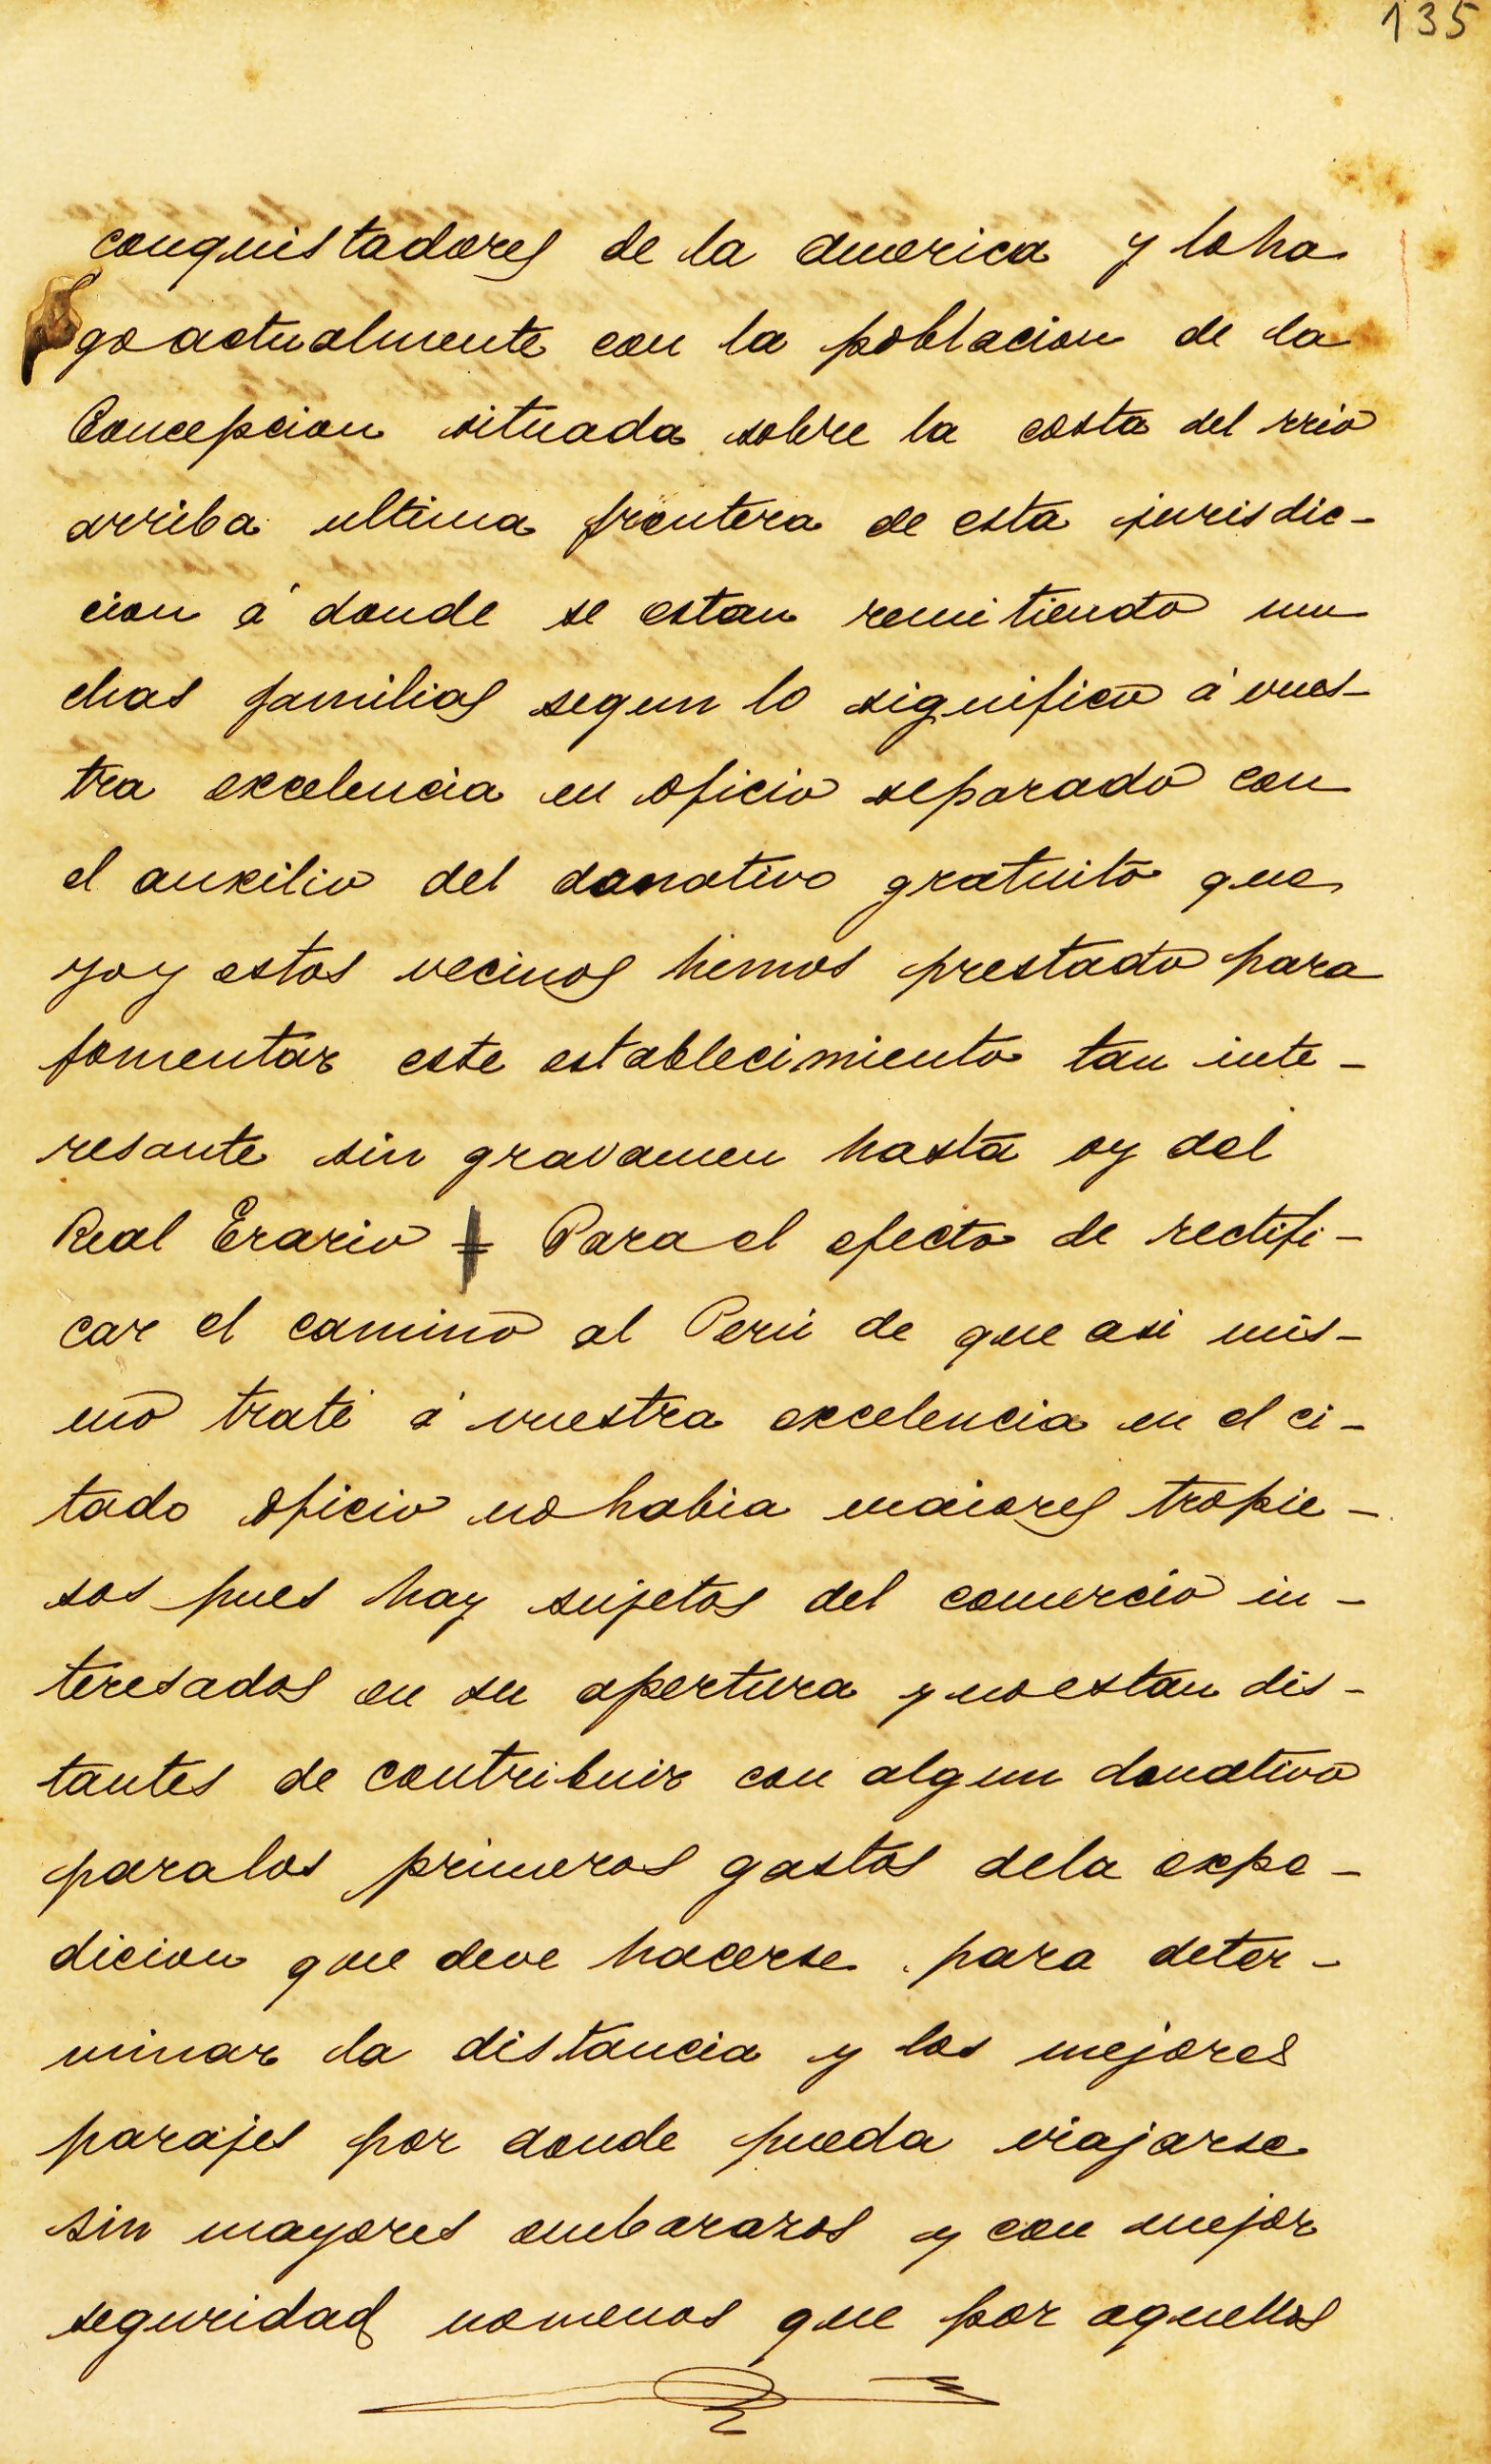 135
conquistadores de la america y lo ha
go actualmente con la poblacion de la
Concepcion situada sobre la costa del rrio
arriba ultima frontera de esta jurisdic-
cion á donde se estan remitiendo mu
chas familias segun lo significo á vues-
tra excelencia en oficio separado con
el auxilio del donativo gratuito que
yo y estos vecinos hemos prestado para
fomentar este establecimiento tan inte-
resante sin gravamen hasta oy del
Real Erario = Para el efecto de rectifi-
car el camino al Perú de que asi mis-
mo traté á vuestra excelencia en el ci-
tado oficio no habia maiores tropie-
sos pues hay sujetos del comercio in-
teresados en su apertura y no estan dis-
tantes de contribuir con algun donativo
para los primeros gastos dela expe-
dicion que deve hacerse para deter-
minar la distancia y los mejores
parajes por donde pueda viajarse
sin mayores embarazos y con mejor
seguridad no menos que por aquellos